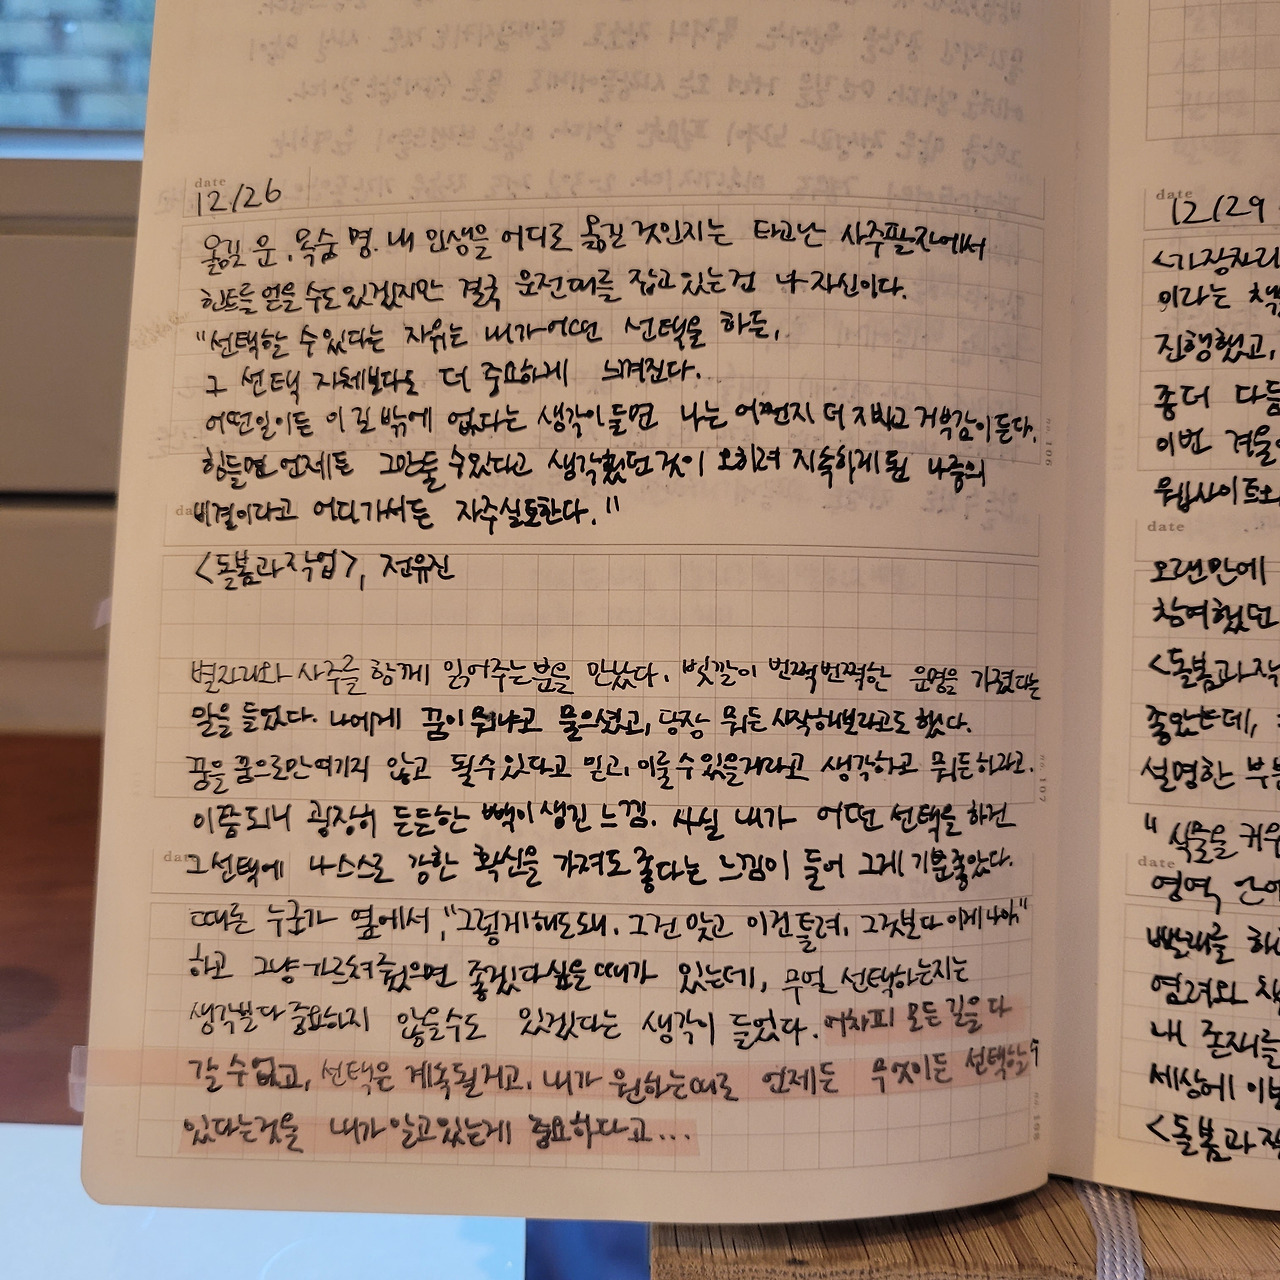 date
12/26
옮길 운, 목숨 명. 내 인생을 어디로 옮길 것인지는 타고난 사주팔자에서
힌트를 얻을 수도 있겠지만 결국 운전대를 잡고 있는 건 나 자신이다.
"선택할 수 있다는 자유는 내가 어떤 선택을 하든,
그 선택 자체보다도 더 중요하게 느껴진다.
어떤 일이든 이 길 밖에 없다는 생각이 들면 나는 어쩐지 더 지치고 거부감이 든다.
힘들면 언제든 그만둘 수 있다고 생각했던 것이 오히려 지속하게 된 나름의
비결이라고 어디가서든 자주 실토한다."
<돌봄과 작업>, 전유진
별자리와 사주를 함께 읽어주는 분을 만났다. 빛깔이 번쩍번쩍한 운명을 가졌다는
말을 들었다. 나에게 꿈이 뭐냐고 물으셨고, 당장 뭐든 시작해보라고도 했다.
꿈을 꿈으로만 여기지 않고 될 수 있다고 믿고, 이룰 수 있을거라고 생각하고 뭐든 하라고.
이쯤되니 굉장히 든든한 빽이 생긴 느낌. 사실 내가 어떤 선택을 하건
그 선택에 나 스스로 강한 확신을 가져도 좋다는 느낌이 들어 그게 기분 좋았다.
때론 누군가 옆에서, "그렇게 해도 돼. 그건 맞고 이건 틀려. 그것보다 이게 나아."
하고 그냥 가르쳐 줬으면 좋겠다 싶을 때가 있는데, 무얼 선택하는지는
생각보다 중요하지 않을 수도 있겠다는 생각이 들었다. 어차피 모든 길을 다
갈 수 없고, 선택은 계속될 거고, 내가 원하는 때로 언제든 무엇이든 선택할 수
있다는 것을 내가 알고 있는게 중요하다고...
date
12/29
<가장자리
이라는 책
진행했고,
좀더 다듬
이번 겨울
웹사이트와
date
오랜만에
참여했던
<돌봄과 작
좋았는데,
설명한 부분
"식물을 키우
date
영역
빨래를 하
염려와
내 존재를
세상에
<돌봄과 작